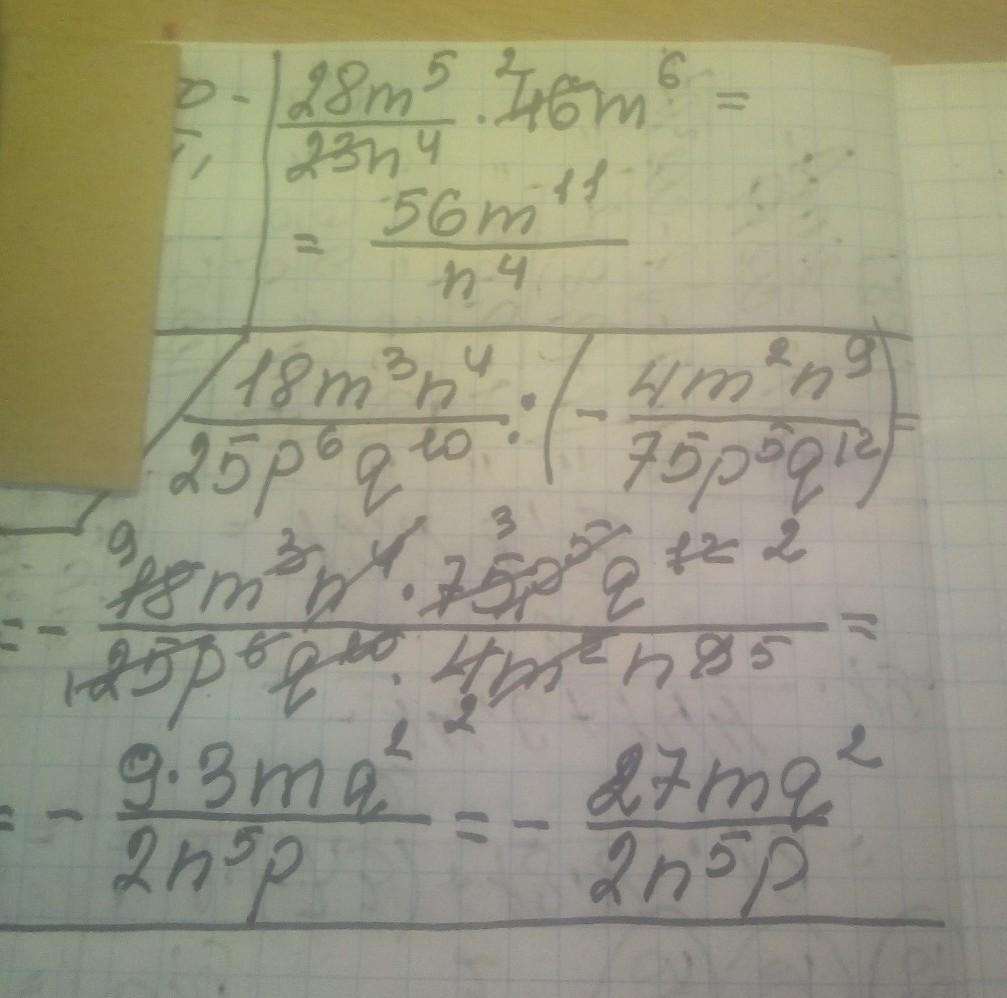 28m⁵/23n⁴ · ²46m⁶ =
= 56m¹¹/n⁴
18m³n⁴/25p⁶q¹⁰ : (- 4m²n⁹/75p⁵q¹²) =
= - ⁹18m³n⁴ · ³75p⁵q¹² ²/₁25p⁶q¹⁰ · ₂4m²n⁹ ⁵ =
= - 9·3mq²/2n⁵p = - 27mq²/2n⁵p